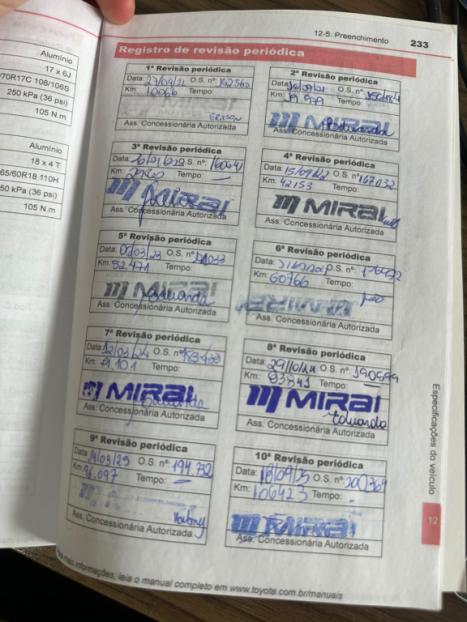 Alumínio
17 x 6J
70R17C 108/106S
250 kPa (36 psi)
105 N.m
Alumínio
18 x 4 T
65/60R18 110H
50 kPa (36 psi)
105 N.m
12-5. Preenchimento 233
Registro de revisão periódica
1ª Revisão periódica
Data: 27/04/21 O.S. nº
Km: 10066 Tempo:
Ass. Concessionária Autorizada
2ª Revisão periódica
Data: O.S. nº
Km: Tempo:
MIRAI
Ass. Concessionária Autorizada
3ª Revisão periódica
Data: O.S. nº
Km: Tempo:
Ass. Concessionária Autorizada
4ª Revisão periódica
Data: O.S. nº 167032
Km: 42153 Tempo:
MIRAI
Ass. Concessionária Autorizada
5ª Revisão periódica
Data: O.S. nº
Km: 52.471 Tempo:
MIRAI
Eduarda
Ass. Concessionária Autorizada
6ª Revisão periódica
Data: O.S. nº
Km: 60766 Tempo:
MIRAI
Ass. Concessionária Autorizada
7ª Revisão periódica
Data: 12/03/24 O.S. nº
Km: Tempo:
MIRAI
Ass. Concessionária Autorizada
8ª Revisão periódica
Data: 29/10/24 O.S. nº 190699
Km: 83841 Tempo:
MIRAI
Eduarda
Ass. Concessionária Autorizada
9ª Revisão periódica
Data: O.S. nº 194.732
Km: Tempo:
Ass. Concessionária Autorizada
10ª Revisão periódica
Data: 18/09/25 O.S. nº 200.769
Km: 106423 Tempo:
MIRAI
Ass. Concessionária Autorizada
Especificações do veículo
12
mais informações, leia o manual completo em www.toyota.com.br/manuais